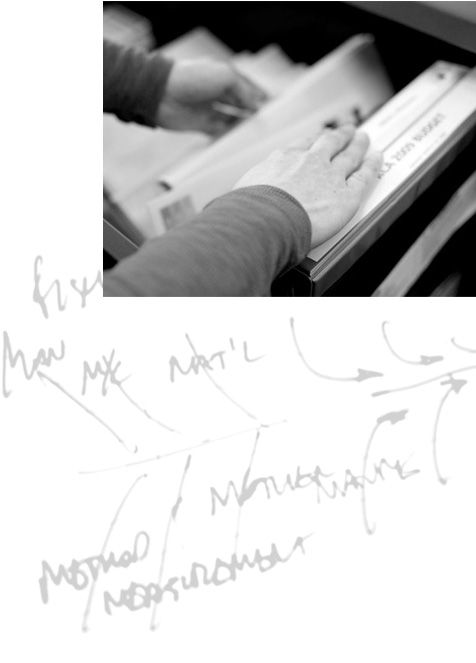 2009 BUDGET
MAN M/C MAT'L
MOTHER NATURE
METHOD
MEASUREMENT